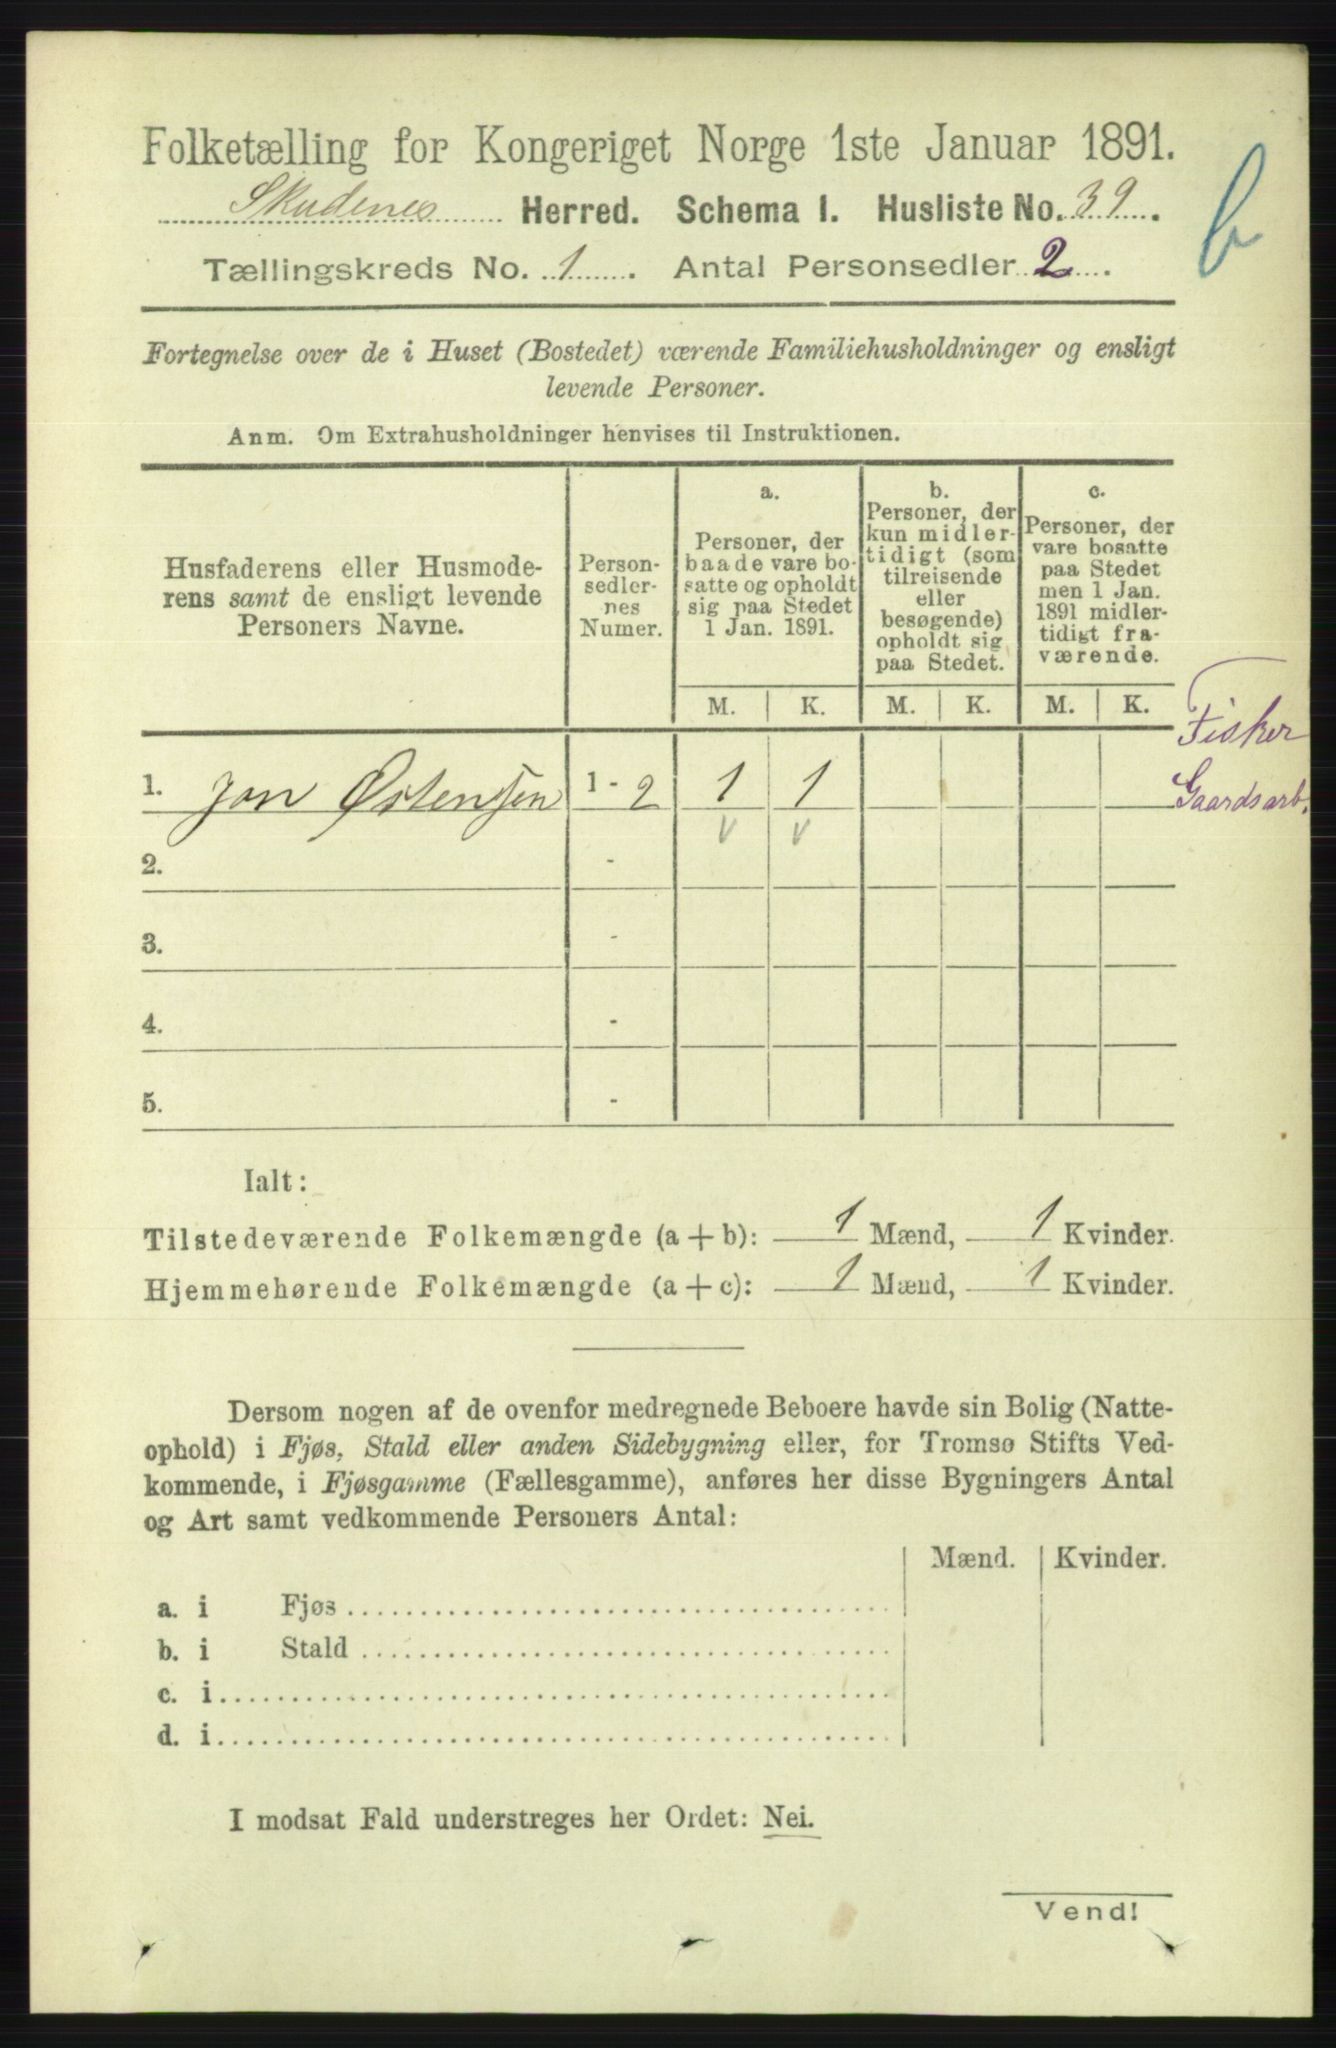 Folketælling for Kongeriget Norge 1ste Januar 1891.
Skudenes Herred. Schema 1. Husliste No. 39.
b
Tællingskreds No. 1. Antal Personsedler 2.
Fortegnelse over de i Huset (Bostedet) værende Familiehusholdninger og ensligt
levende Personer.
Anm. Om Extrahusholdninger henvises til Instruktionen.
Husfaderens eller Husmode-
rens samt de ensligt levende
Personers Navne.
Person-
sedler-
nes
Numer.
a.
Personer, der
baade vare bo-
satte og opholdt
sig paa Stedet
1 Jan. 1891.
b.
Personer, der
kun midler-
tidigt (som
tilreisende
eller
besøgende)
opholdt sig
paa Stedet.
c.
Personer, der
vare bosatte
paa Stedet
men 1 Jan.
1891 midler-
tidigt fra-
værende.
M. K. M. K. M. K.
Fisker
Gaardsarb.
1. Jon Østensen 1 - 2 1 1
v v
2. -
3. -
4. -
5. -
Ialt:
Tilstedeværende Folkemængde (a + b): 1 Mænd, 1 Kvinder.
Hjemmehørende Folkemængde (a + c): 1 Mænd, 1 Kvinder.
Dersom nogen af de ovenfor medregnede Beboere havde sin Bolig (Natte-
ophold) i Fjøs, Stald eller anden Sidebygning eller, for Tromsø Stifts Ved-
kommende, i Fjøsgamme (Fællesgamme), anføres her disse Bygningers Antal
og Art samt vedkommende Personers Antal:
Mænd. Kvinder.
a. i Fjøs
b. i Stald
c. i
d. i
I modsat Fald understreges her Ordet: Nei.
Vend!